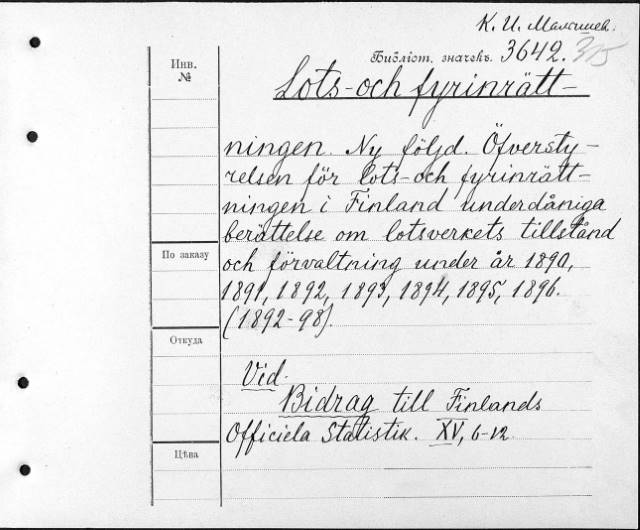 К. И. Малышев.
Библіот. значекъ. 3642. 315
Инв.
№
Lots- och fyrinrätt-
ningen. Ny följd. Öfversty-
relsen för lots- och fyrinrätt-
ningen i Finland underdåniga
berättelse om lotsverkets tillstånd
По заказу
och förvaltning under år 1890,
1891, 1892, 1893, 1894, 1895, 1896.
(1892-98).
Откуда
Vid.
Bidrag till Finlands
Officiela Statistik. XV, 6-12.
Цѣна